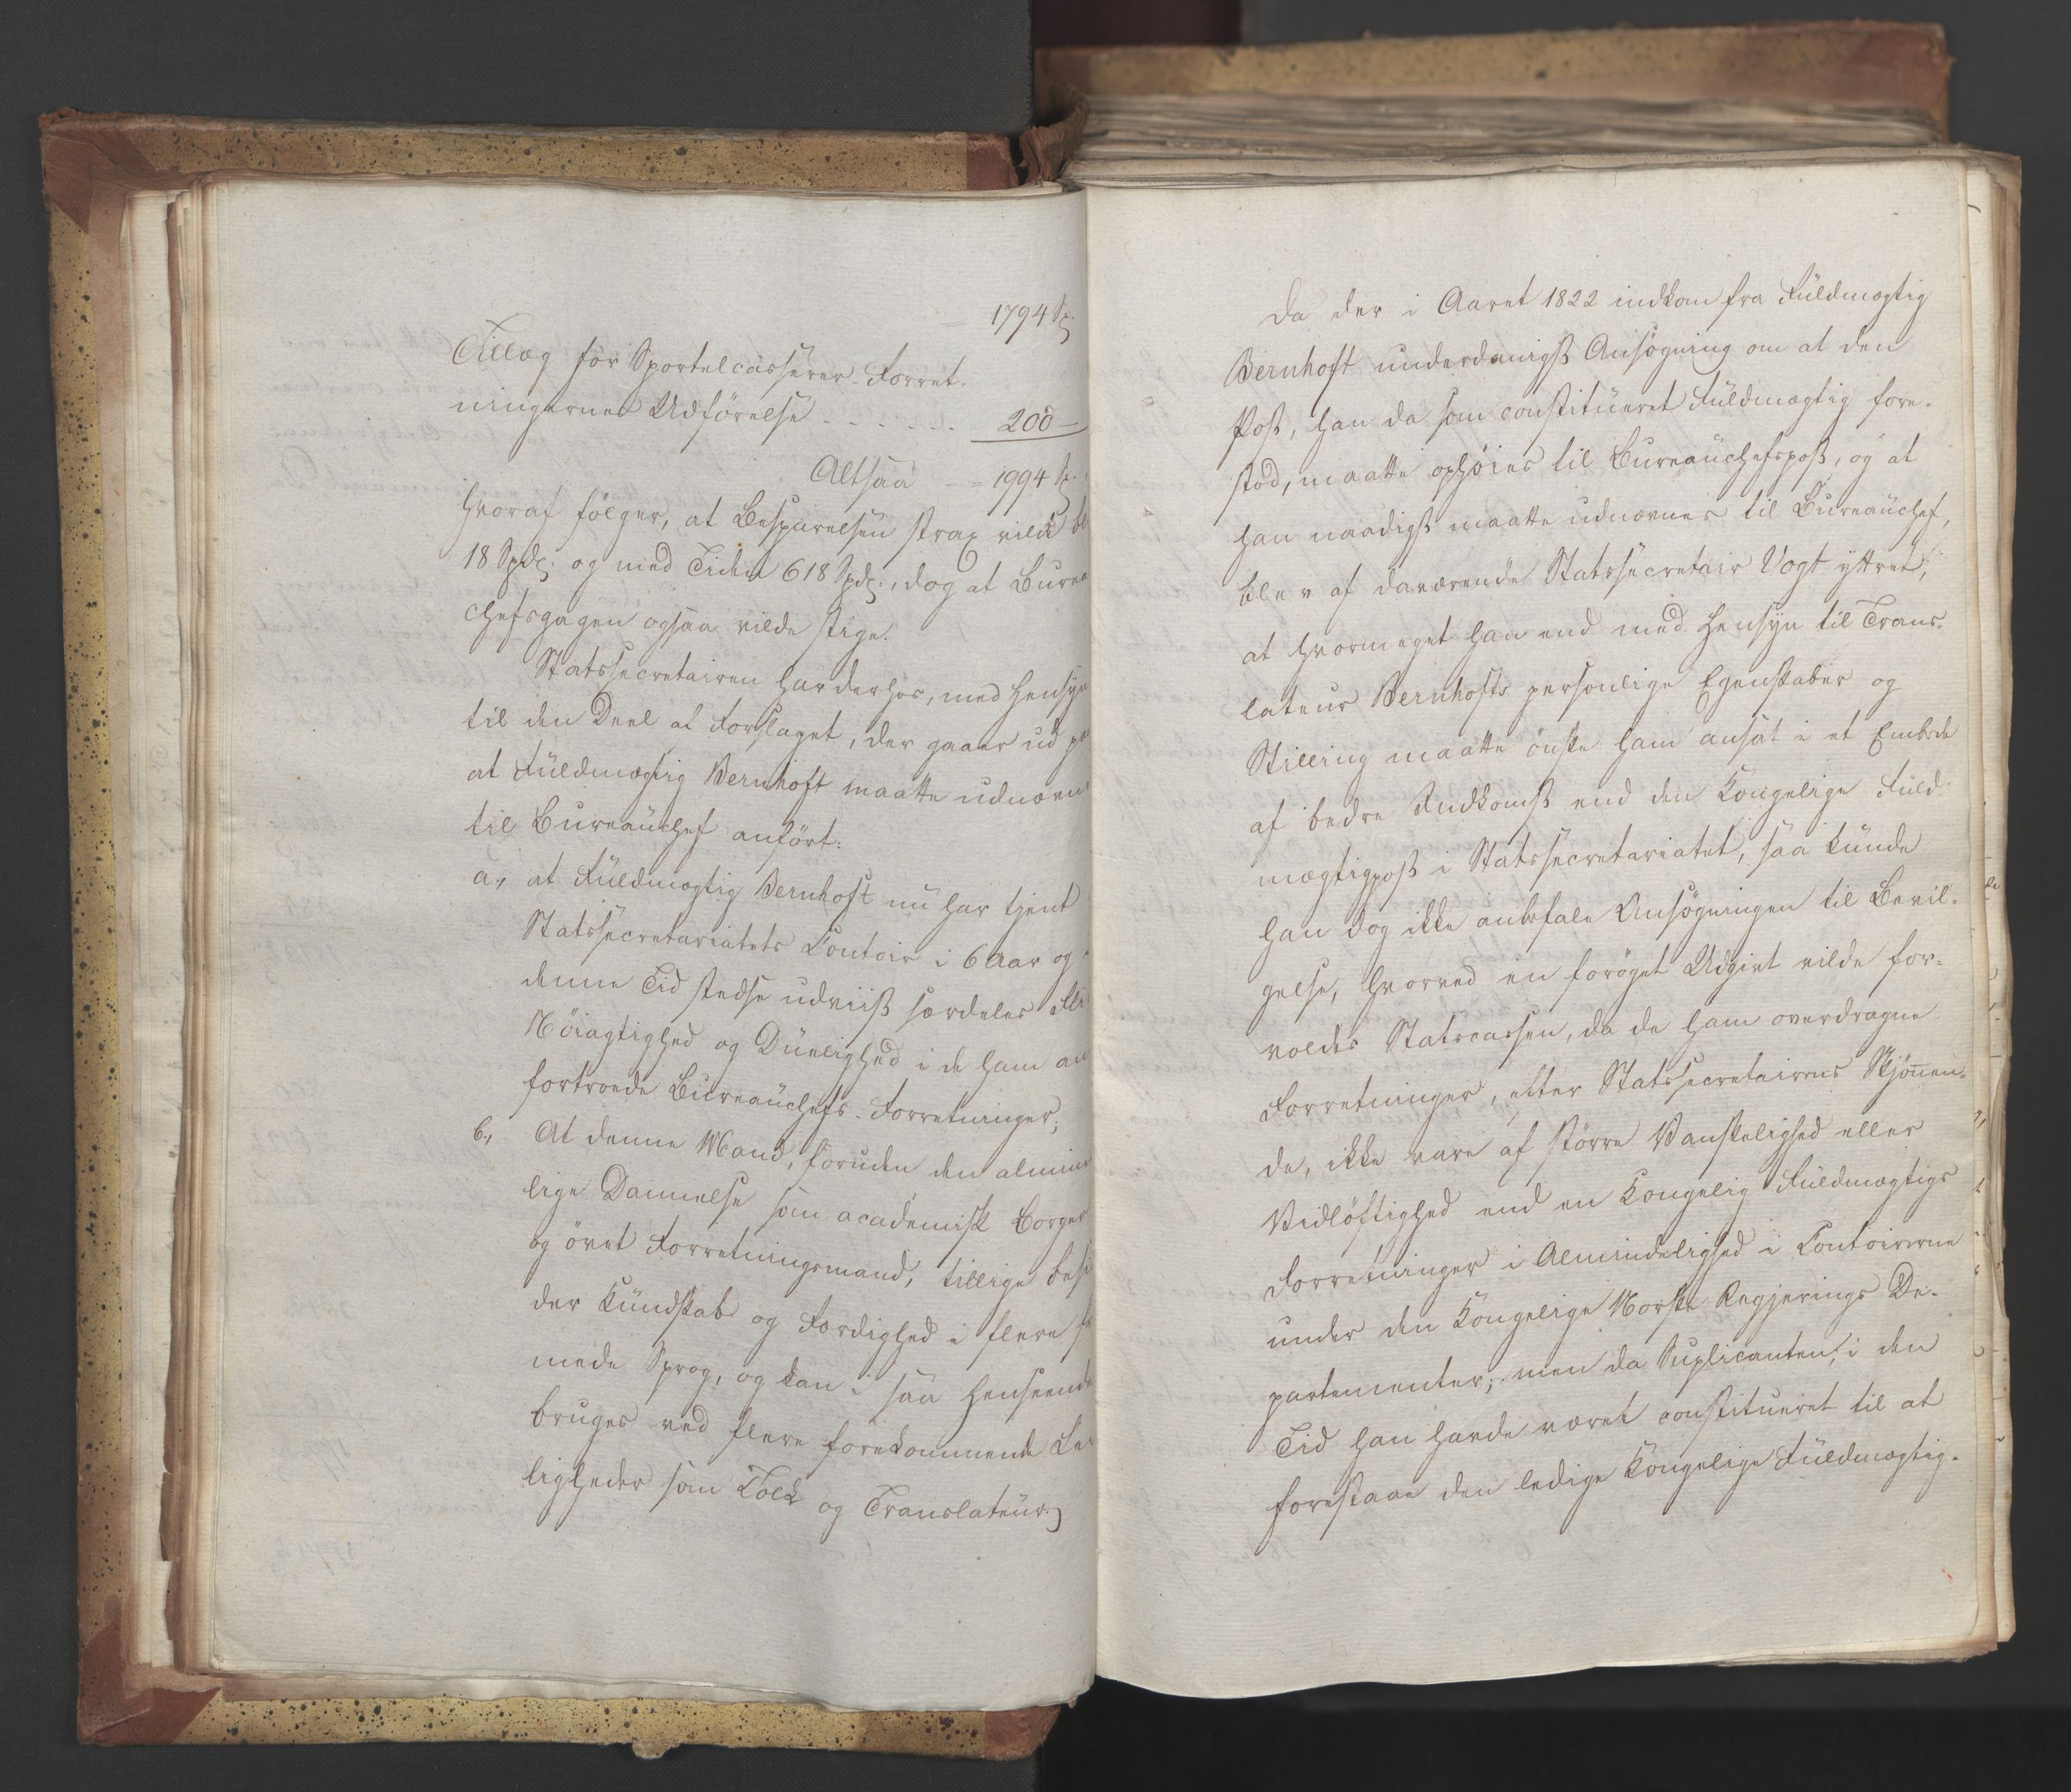 1794 Sp.
Tillæg for Sportelcasserer-Forret-
ningernes Udførelse - - - - - - 200 -
Altsaa - - 1994 Sp.
hvoraf følger, at Besparelsen strax vilde bl
18 Spd. og med Tiden 618 Spd., dog at Burea
chefsgagen ogsaa vilde stige.
Statssecretairen har derhos, med Hensyn
til den Deel af Forslaget, der gaaer ud pa
at Fuldmægtig Bernhoft maatte udnævn
til Bureauchef anført:
a., at Fuldmægtig Bernhoft nu har tjent
Statssecretariatets Contoir i 6 Aar og
denne Tid stedse udviist særdeles Fli
Nøiagtighed og Duelighed i de ham an
fortroede Bureauchefs-Forretninger;
b., At denne Mand, foruden den almin
lige Dannelse som academisk Borger
og øvet Forretningsmand, tillige besi
der Kundskab og Færdighed i flere fr
mede Sprog, og kan i saa Henseende
bruges ved flere forekommende Lei
ligheder som Tolk og Translateur.
Da der i Aaret 1822 indkom fra Fuldmægtig
Bernhoft underdanigst Ansøgning om at den
Post, han da som constitueret Fuldmægtig fore-
stod, maatte ophøies til Bureauchefspost, og at
han naadigst maatte udnævnes til Bureauchef,
blev af daværende Statssecretair Vogt yttret,
at hvormeget han end med Hensyn til Trans-
lateur Bernhofts personlige Egenskaber og
Stilling maatte ønske ham ansat i et Embede
af bedre Indkomst end den Kongelige Fuld-
mægtigpost i Statssecretariatet, saa kunde
han dog ikke anbefale Ansøgningen til Bevil-
gelse, hvorved en forøget Udgivt vilde for-
voldes Statscassen, da de ham overdragne
Forretninger, efter Statssecretairens Skjønnen-
de, ikke vare af større Vanskelighed eller
Vidløftighed end en Kongelig Fuldmægtigs
Forretninger i Almindelighed i Contoirerne
under den Kongelige Norske Regjerings De-
partementer; men da Suplicanten, i den
Tid han havde været constitueret til at
forestaae den ledige Kongelige Fuldmægtig-